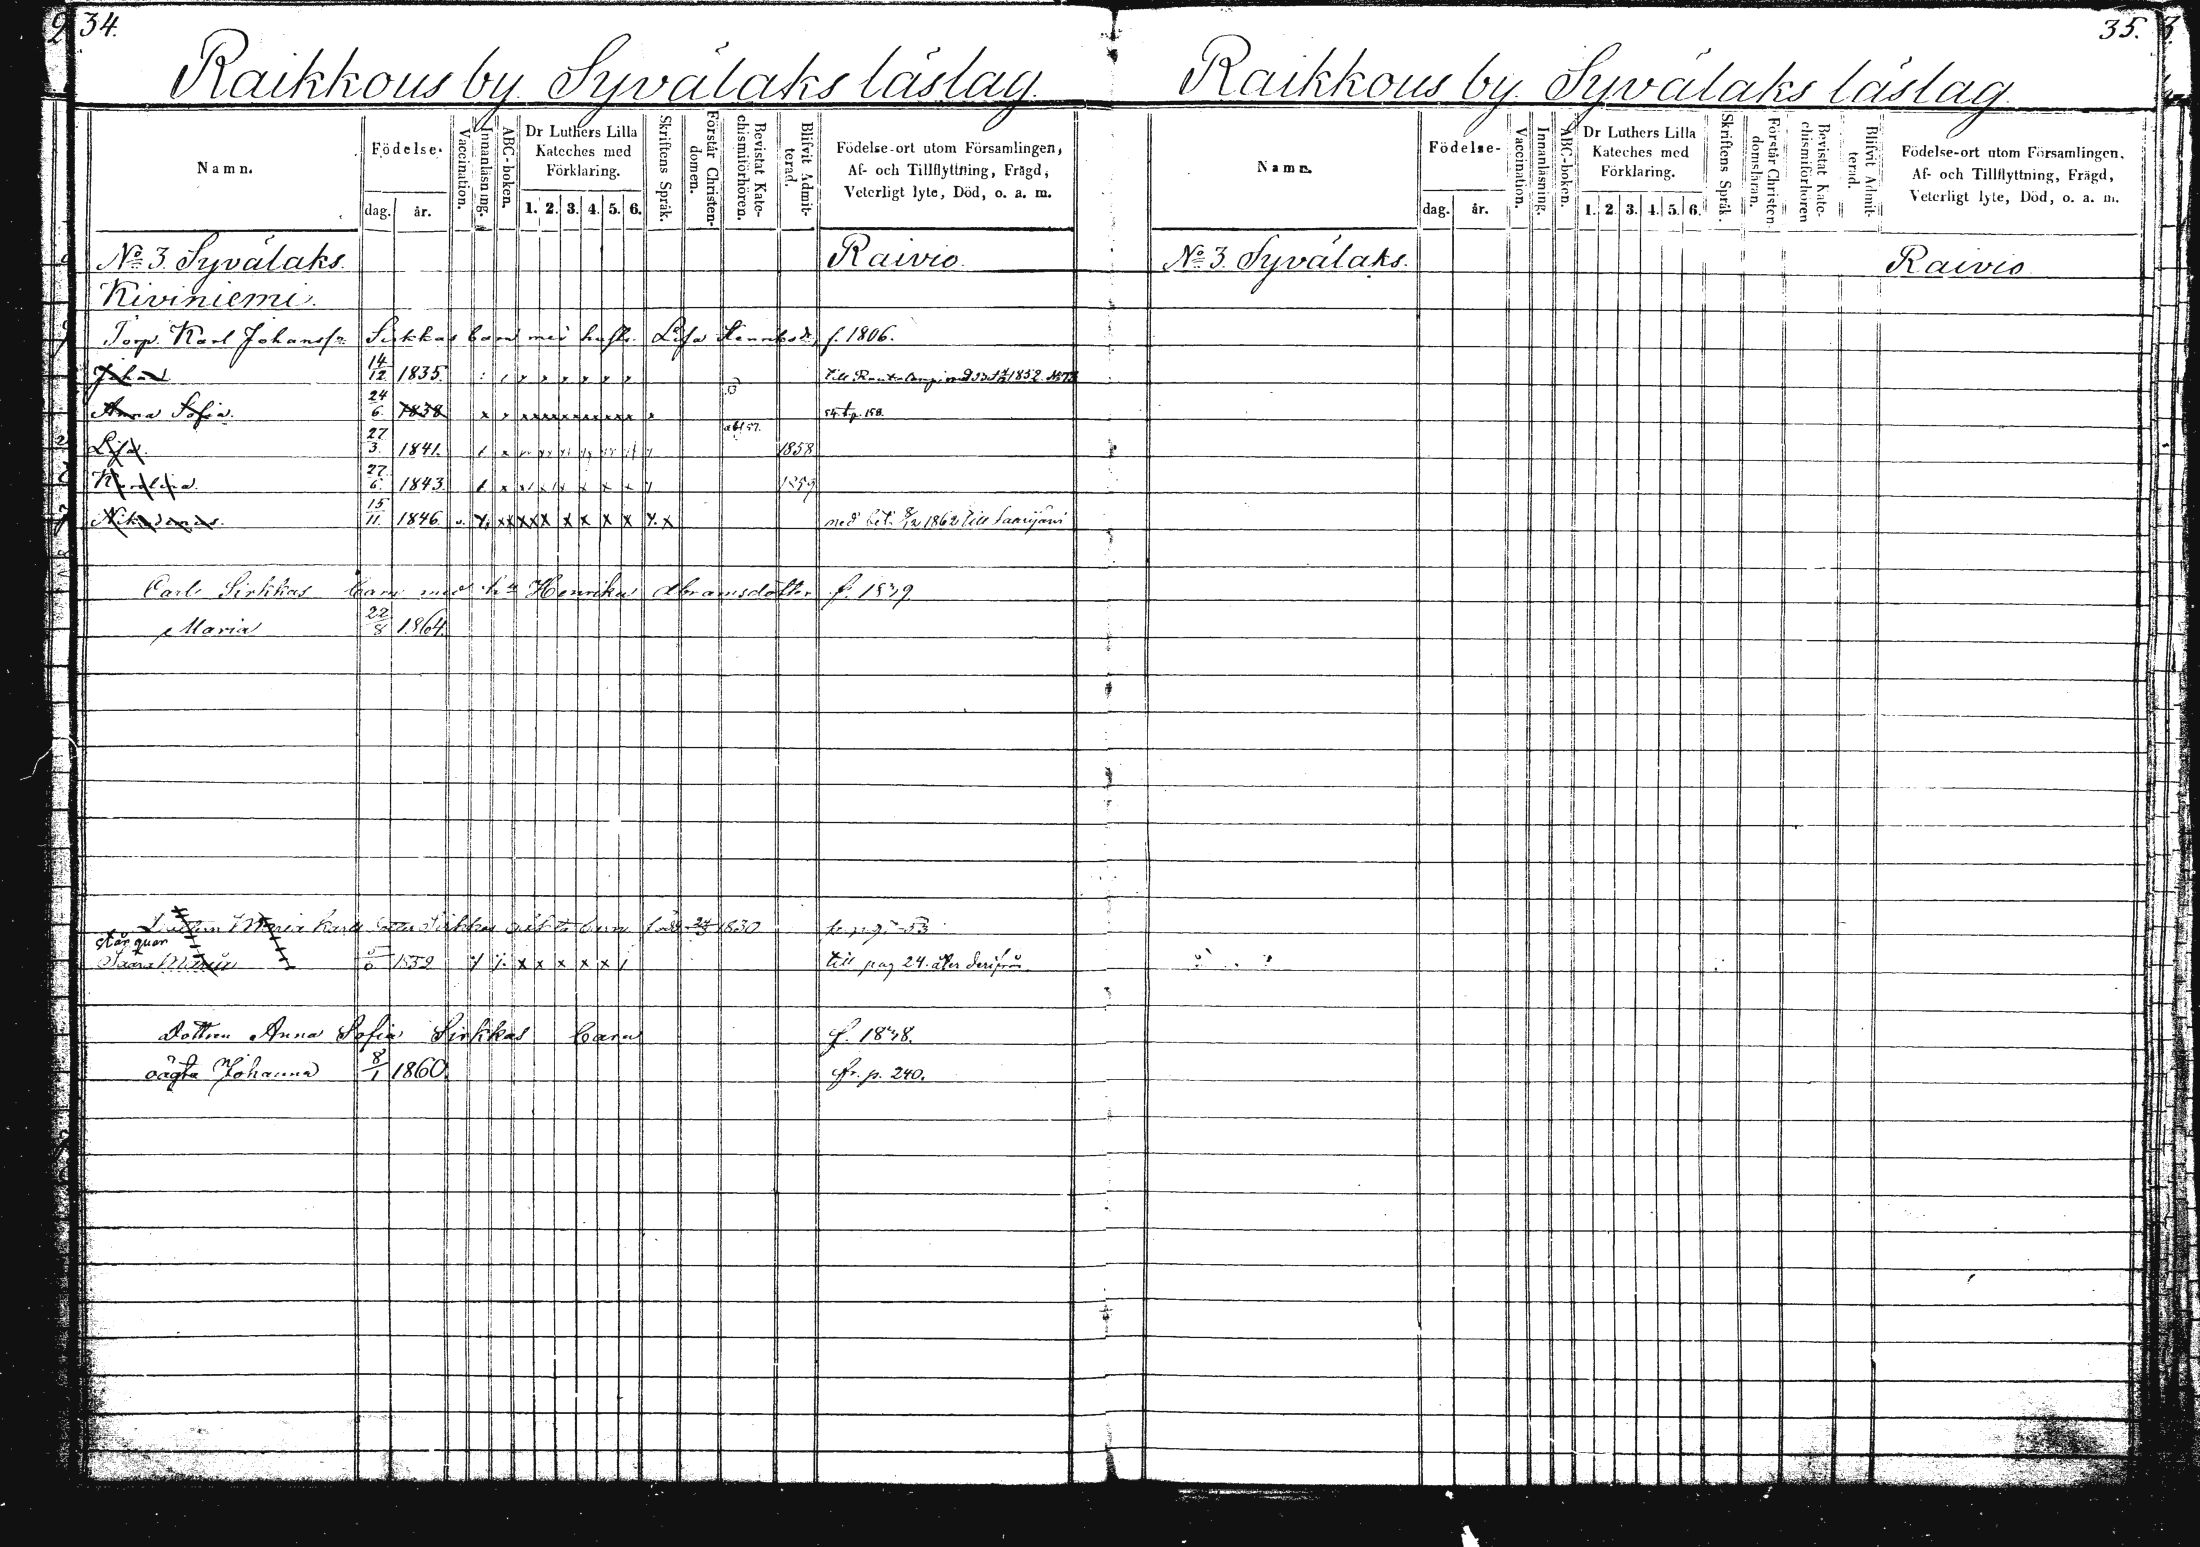 34.
Raikkous by. Syvälaks läslag.
Namn.
Födelse-
dag. år.
Vaccination.
Innanläsning.
ABC-boken.
Dr Luthers Lilla Kateches med Förklaring.
1. 2. 3. 4. 5. 6.
Skriftens Språk.
Förstår Christendomen.
Bevistat Katechismiförhören.
Blifvit Admitterad.
Födelse-ort utom Församlingen,
Af- och Tillflyttning, Frägd,
Veterligt lyte, Död, o. a. m.
No 3. Syvälaks. Raivio
Kiviniemi.
Torp. Karl Johanss: Sirkkas barn med hust. Lisa f. 1806.
Johan 14/12 1835.
Anna Sofia. 24/6 1838 54. t. p. 158.
Lisa. 27/3. 1841. 1858
Karolina. 27/6. 1843 1859
Nikodemus. 15/11. 1846 v. med bet. 8/12 1862 till Saarijärvi
Carl Sirkkas barn med Henrika Abramsdotter f. 1839
Maria 22/8 1864.
Maria Karls Sirkkas barn född 1830
står quar
1852 till pag 24. åter derifrån
Dottren Anna Sofia Sirkkas barn f. 1838.
oägta Johanna 8/1 1860. Fr. p. 240.
35.
Raikkous by. Syvälaks läslag
Namn.
Födelse-
dag. år.
Vaccination.
Innanläsning.
ABC-boken.
Dr Luthers Lilla Kateches med Förklaring.
1. 2. 3. 4. 5. 6.
Skriftens Språk.
Förstår Christendomsläran.
Bevistat Katechismiförhören
Blifvit Admitterad.
Födelse-ort utom Församlingen,
Af- och Tillflyttning, Frägd,
Veterligt lyte, Död, o. a. m.
No 3. Syvälaks. Raivio